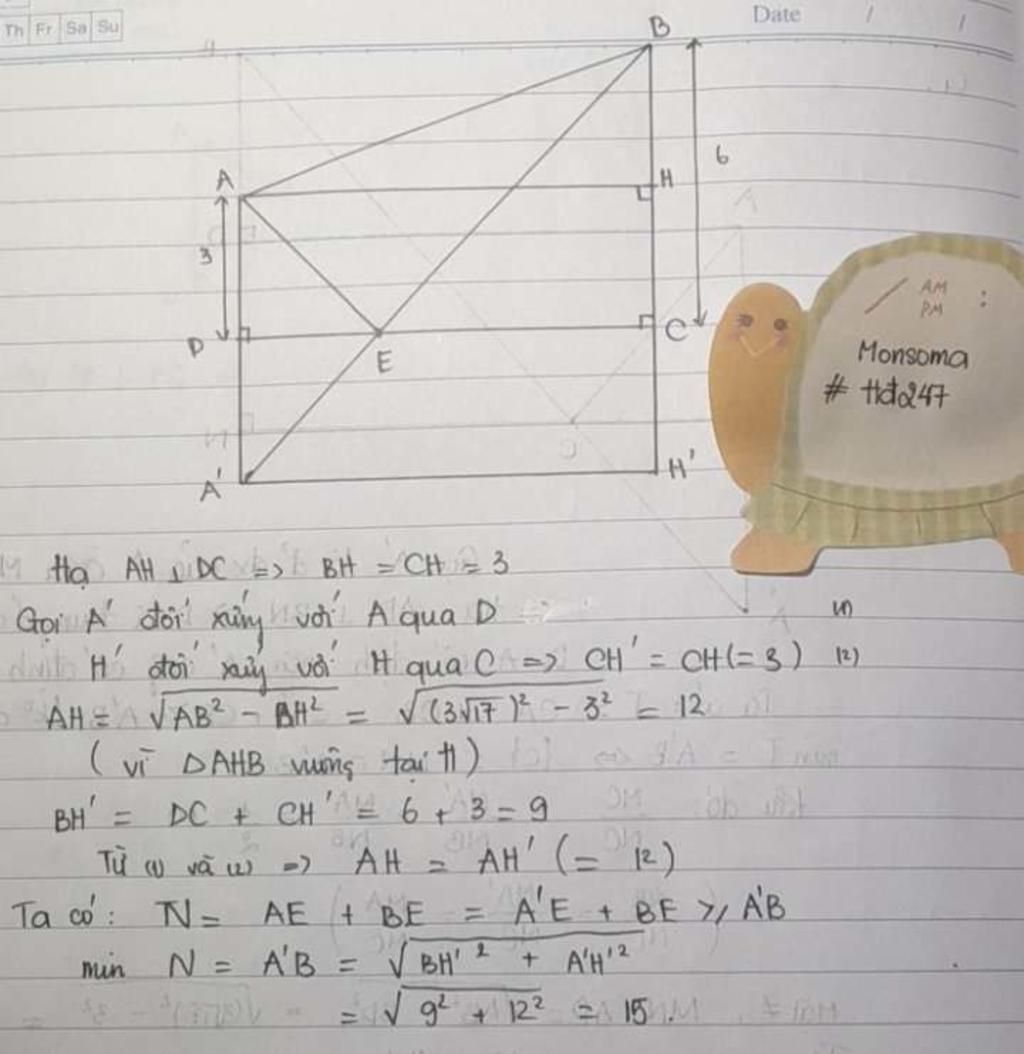 Th Fr Sa Su
Date / /
B
6
A
H
3
D
E
C
A'
H'
AM
PM
:
Monsoma
# Hđ247
Hạ AH ⊥ DC => BH = CH = 3
Gọi A' đối xứng với A qua D (1)
H' đối xứng với H qua C => CH' = CH (= 3) (2)
AH = √(AB² - BH²) = √((3√17)² - 3²) = 12
( vì ΔAHB vuông tại H )
BH' = DC + CH' = 6 + 3 = 9
Từ (1) và (2) => AH = AH' (= 12)
Ta có: N = AE + BE = A'E + BE ≥ A'B
min N = A'B = √(BH'² + A'H'²)
= √(9² + 12²) = 15.